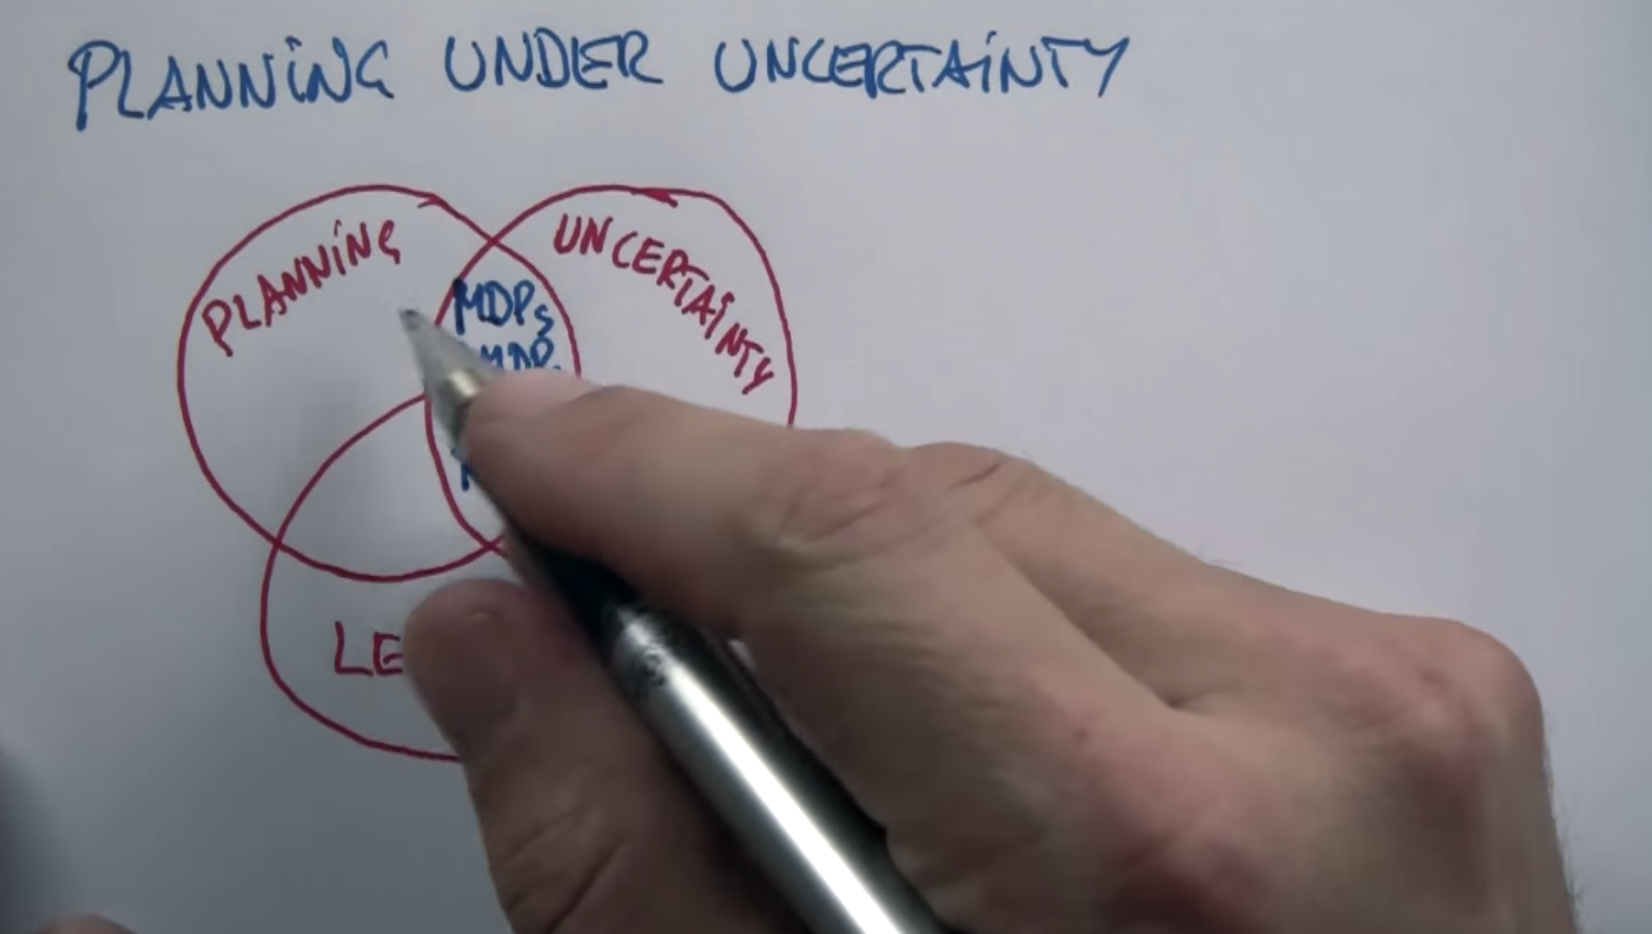 PLANNING UNDER UNCERTAINTY
PLANNING
UNCERTAINTY
MDPs
MDPs
LE